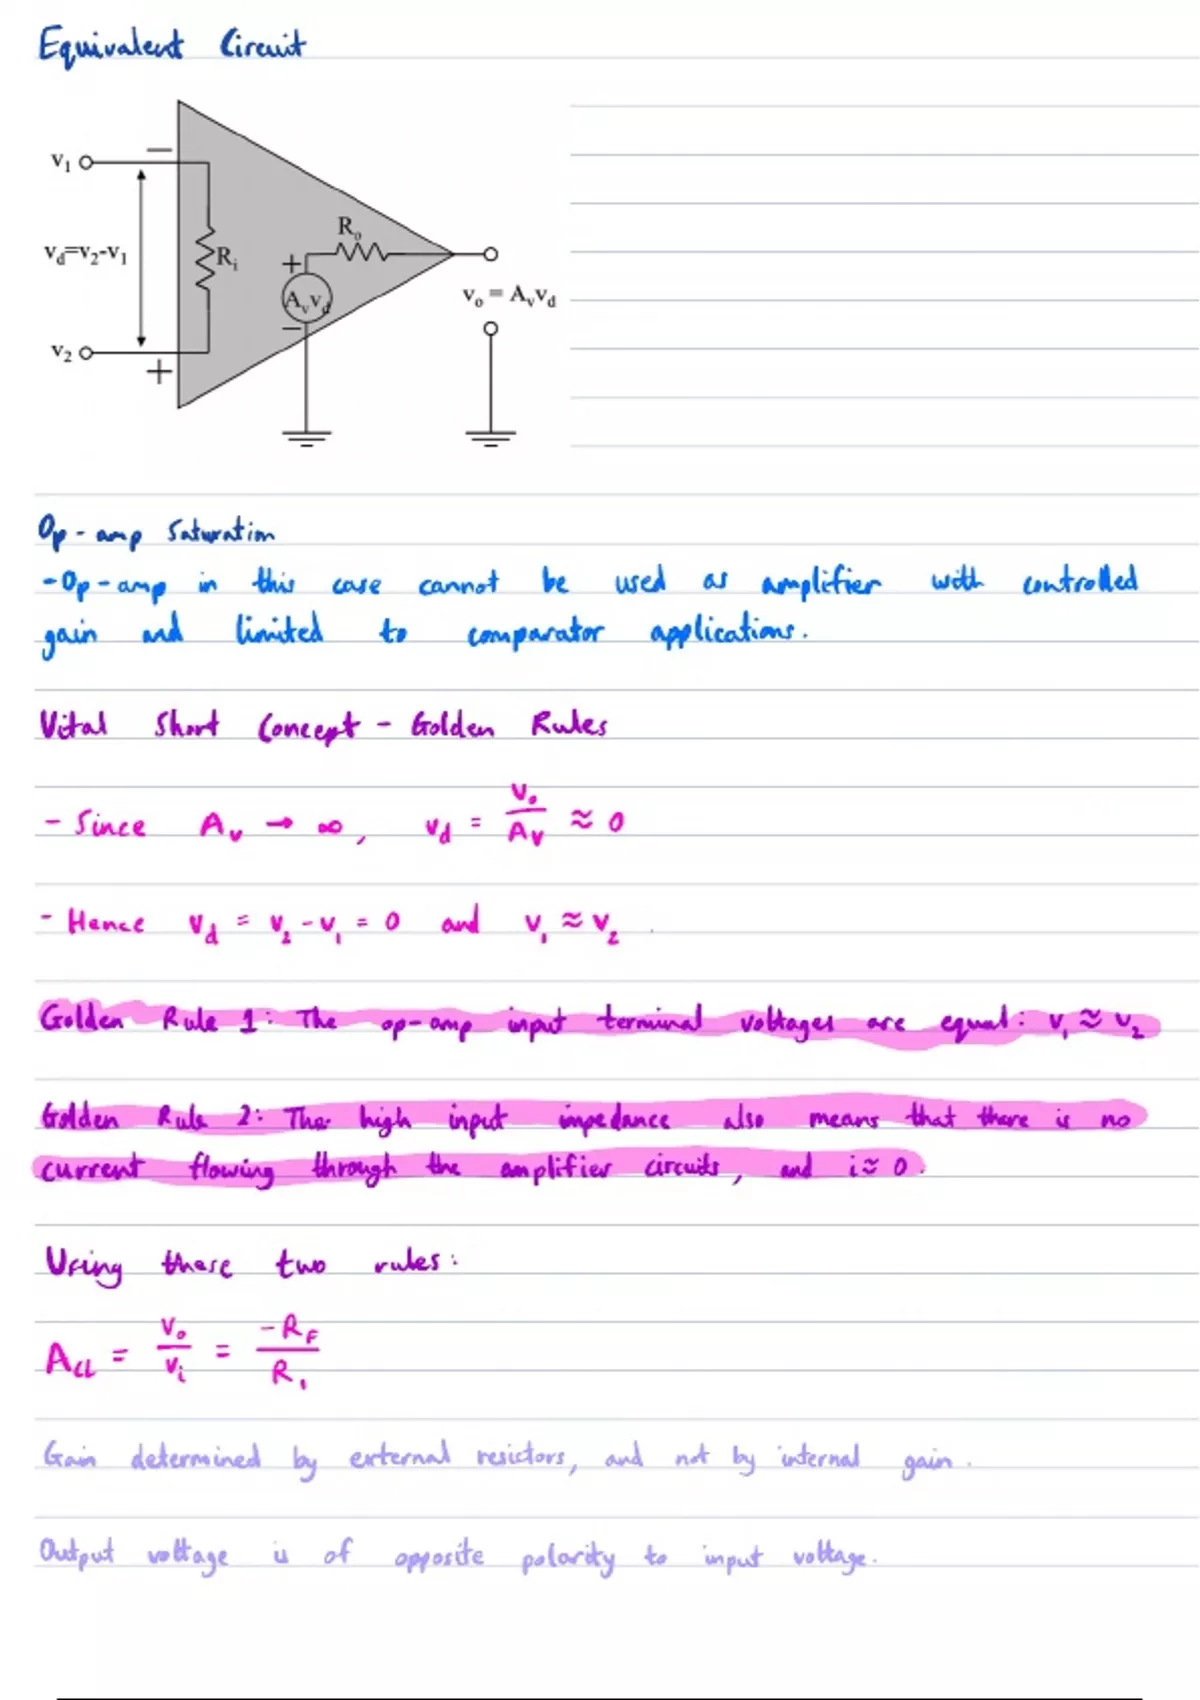 Equivalent Circuit
v₁
−
v_d=v₂-v₁
R_i
R_o
+
A_v v_d
−
v_o = A_v v_d
v₂
+
Op-amp Saturation
- Op-amp in this case cannot be used as amplifier with controlled
gain and limited to comparator applications.
Vital Short Concept - Golden Rules
- Since A_v → ∞, v_d = V_o / A_v ≈ 0
- Hence V_d = V₂ - V₁ = 0 and V₁ ≈ V₂.
Golden Rule 1: The op-amp input terminal voltages are equal: V₁ ≈ V₂
Golden Rule 2: The high input impedance also means that there is no
current flowing through the amplifier circuits, and i ≈ 0.
Using these two rules:
A_CL = V_o / V_i = -R_F / R₁
Gain determined by external resistors, and not by internal gain.
Output voltage is of opposite polarity to input voltage.